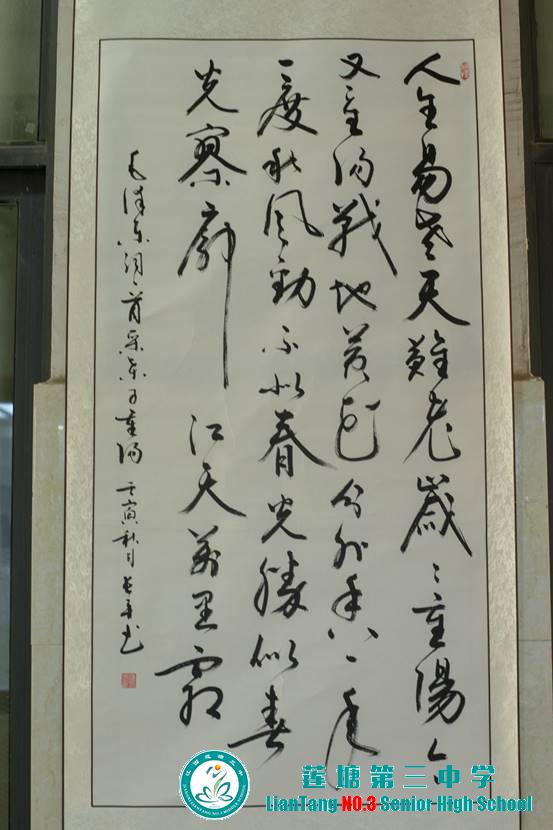 人生易老天難老歲々重陽今
又重陽戰地黃花分外香一年
一度秋風勁不似春光勝似春
光寥廓江天萬里霜
毛澤東詞一首采桑子重陽 壬寅秋月 书
莲塘第三中学
LianTang NO.3 Senior High School